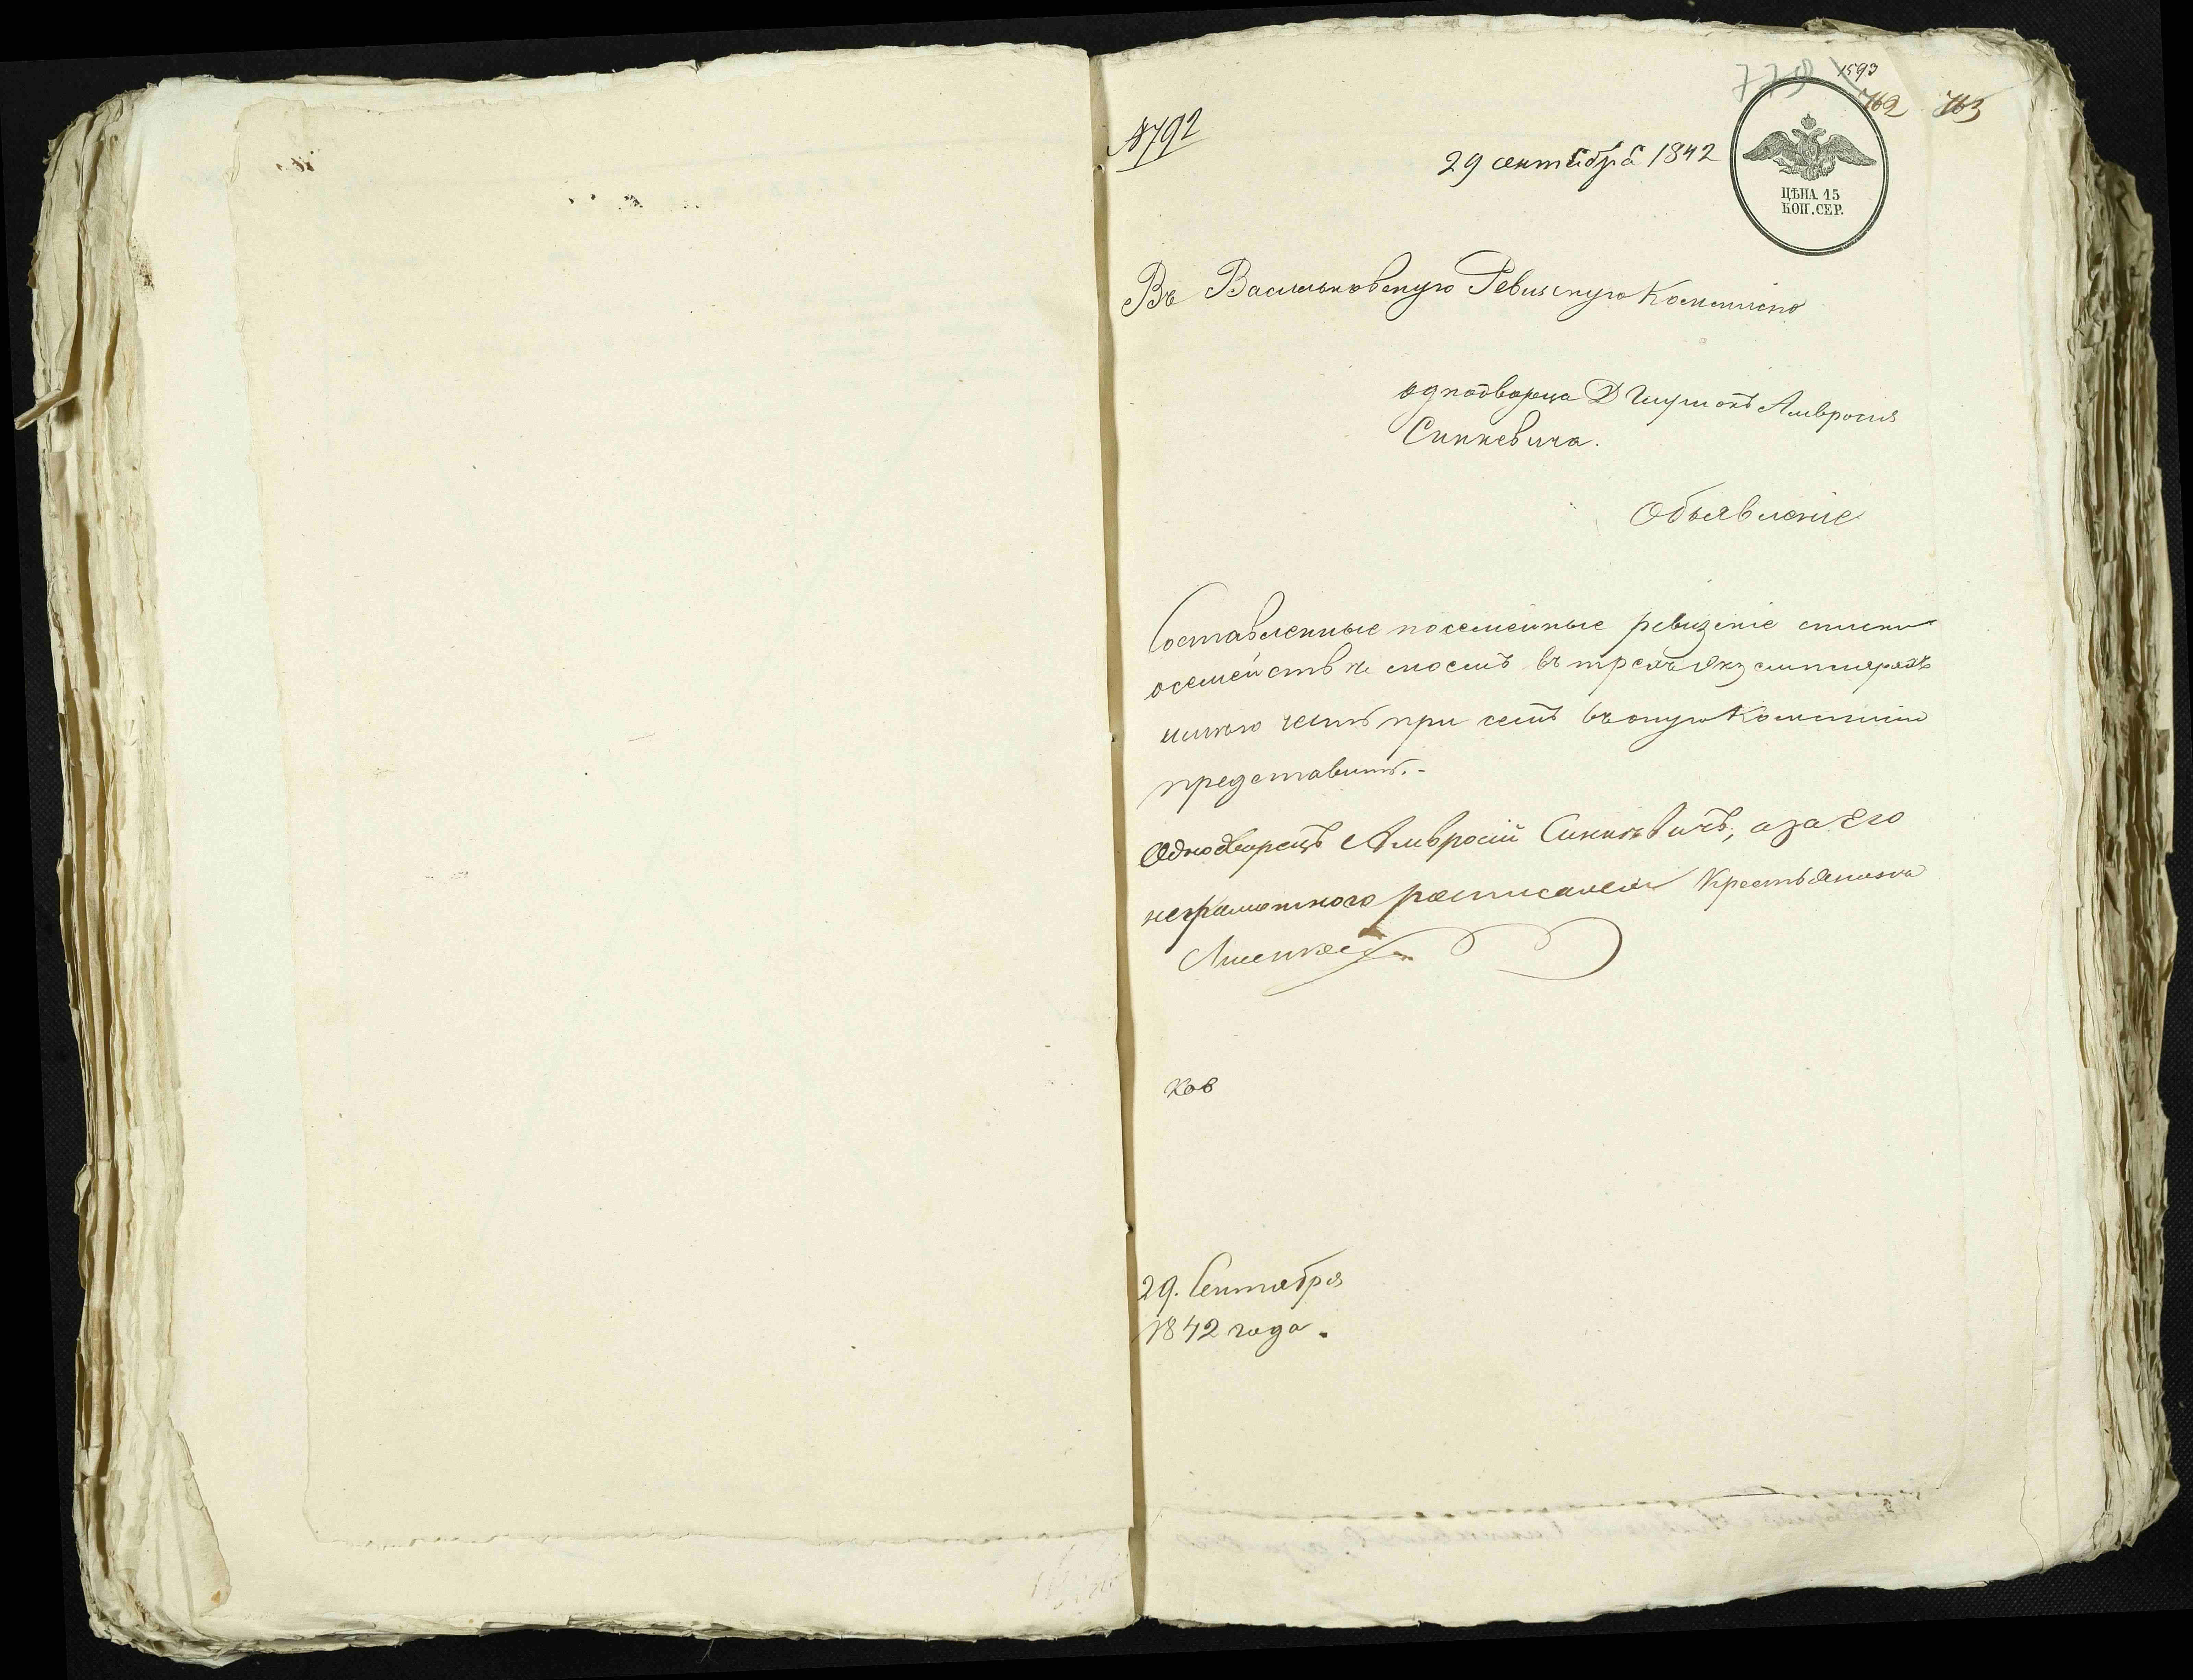 1593
778
762 763
№ 792
29 сентября 1842
ЦѢНА 15
КОП. СЕР.
Въ Васильковскую Ревизскую Коммисію
однодворца Амвросія
Синкевича.
Объявленіе
Составленные посемейные ревизскіе списки
о семействѣ моемъ въ трехъ экземплярахъ
имѣю честь при семъ въ оную Коммисію
представить. -
Однодворецъ Амвросій Синкевичъ, а за его
неграмотного росписался Крестьянинъ
Ков
29. Сентября
1842 года.